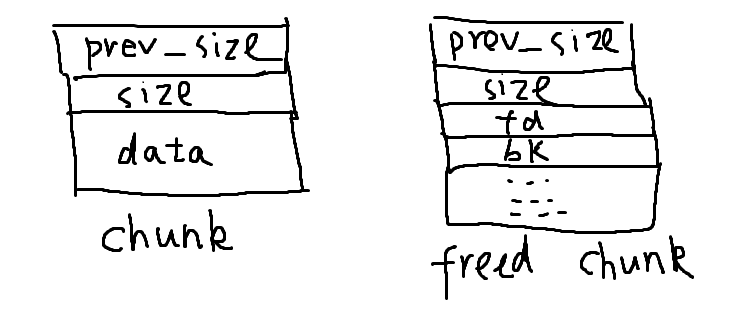 prev_size
size
data
chunk
prev_size
size
fd
bk
freed chunk